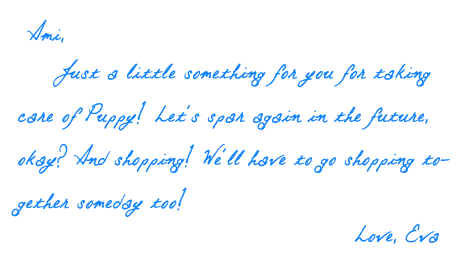 Ami,
Just a little something for you for taking
care of Puppy! Let's spar again in the future,
okay? And shopping! We'll have to go shopping to-
gether someday too!
Love, Eva